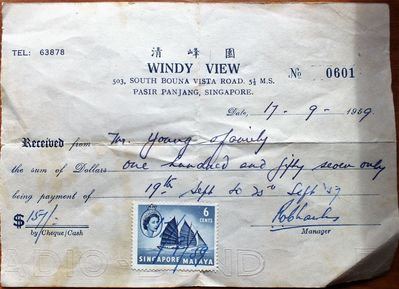 清峰園
TEL: 63878
WINDY VIEW
No 0601
503, SOUTH BOUNA VISTA ROAD. 5¼ M.S.
PASIR PANJANG, SINGAPORE.
Date, 17 - 9 - 1959
Received from Mr. Young & family
the sum of Dollars one hundred and fifty seven only
being payment of 19th Sept to 25th Sept '59
$ 157/-
by/Cheque/Cash
Manager
6
CENTS
SINGAPORE MALAYA